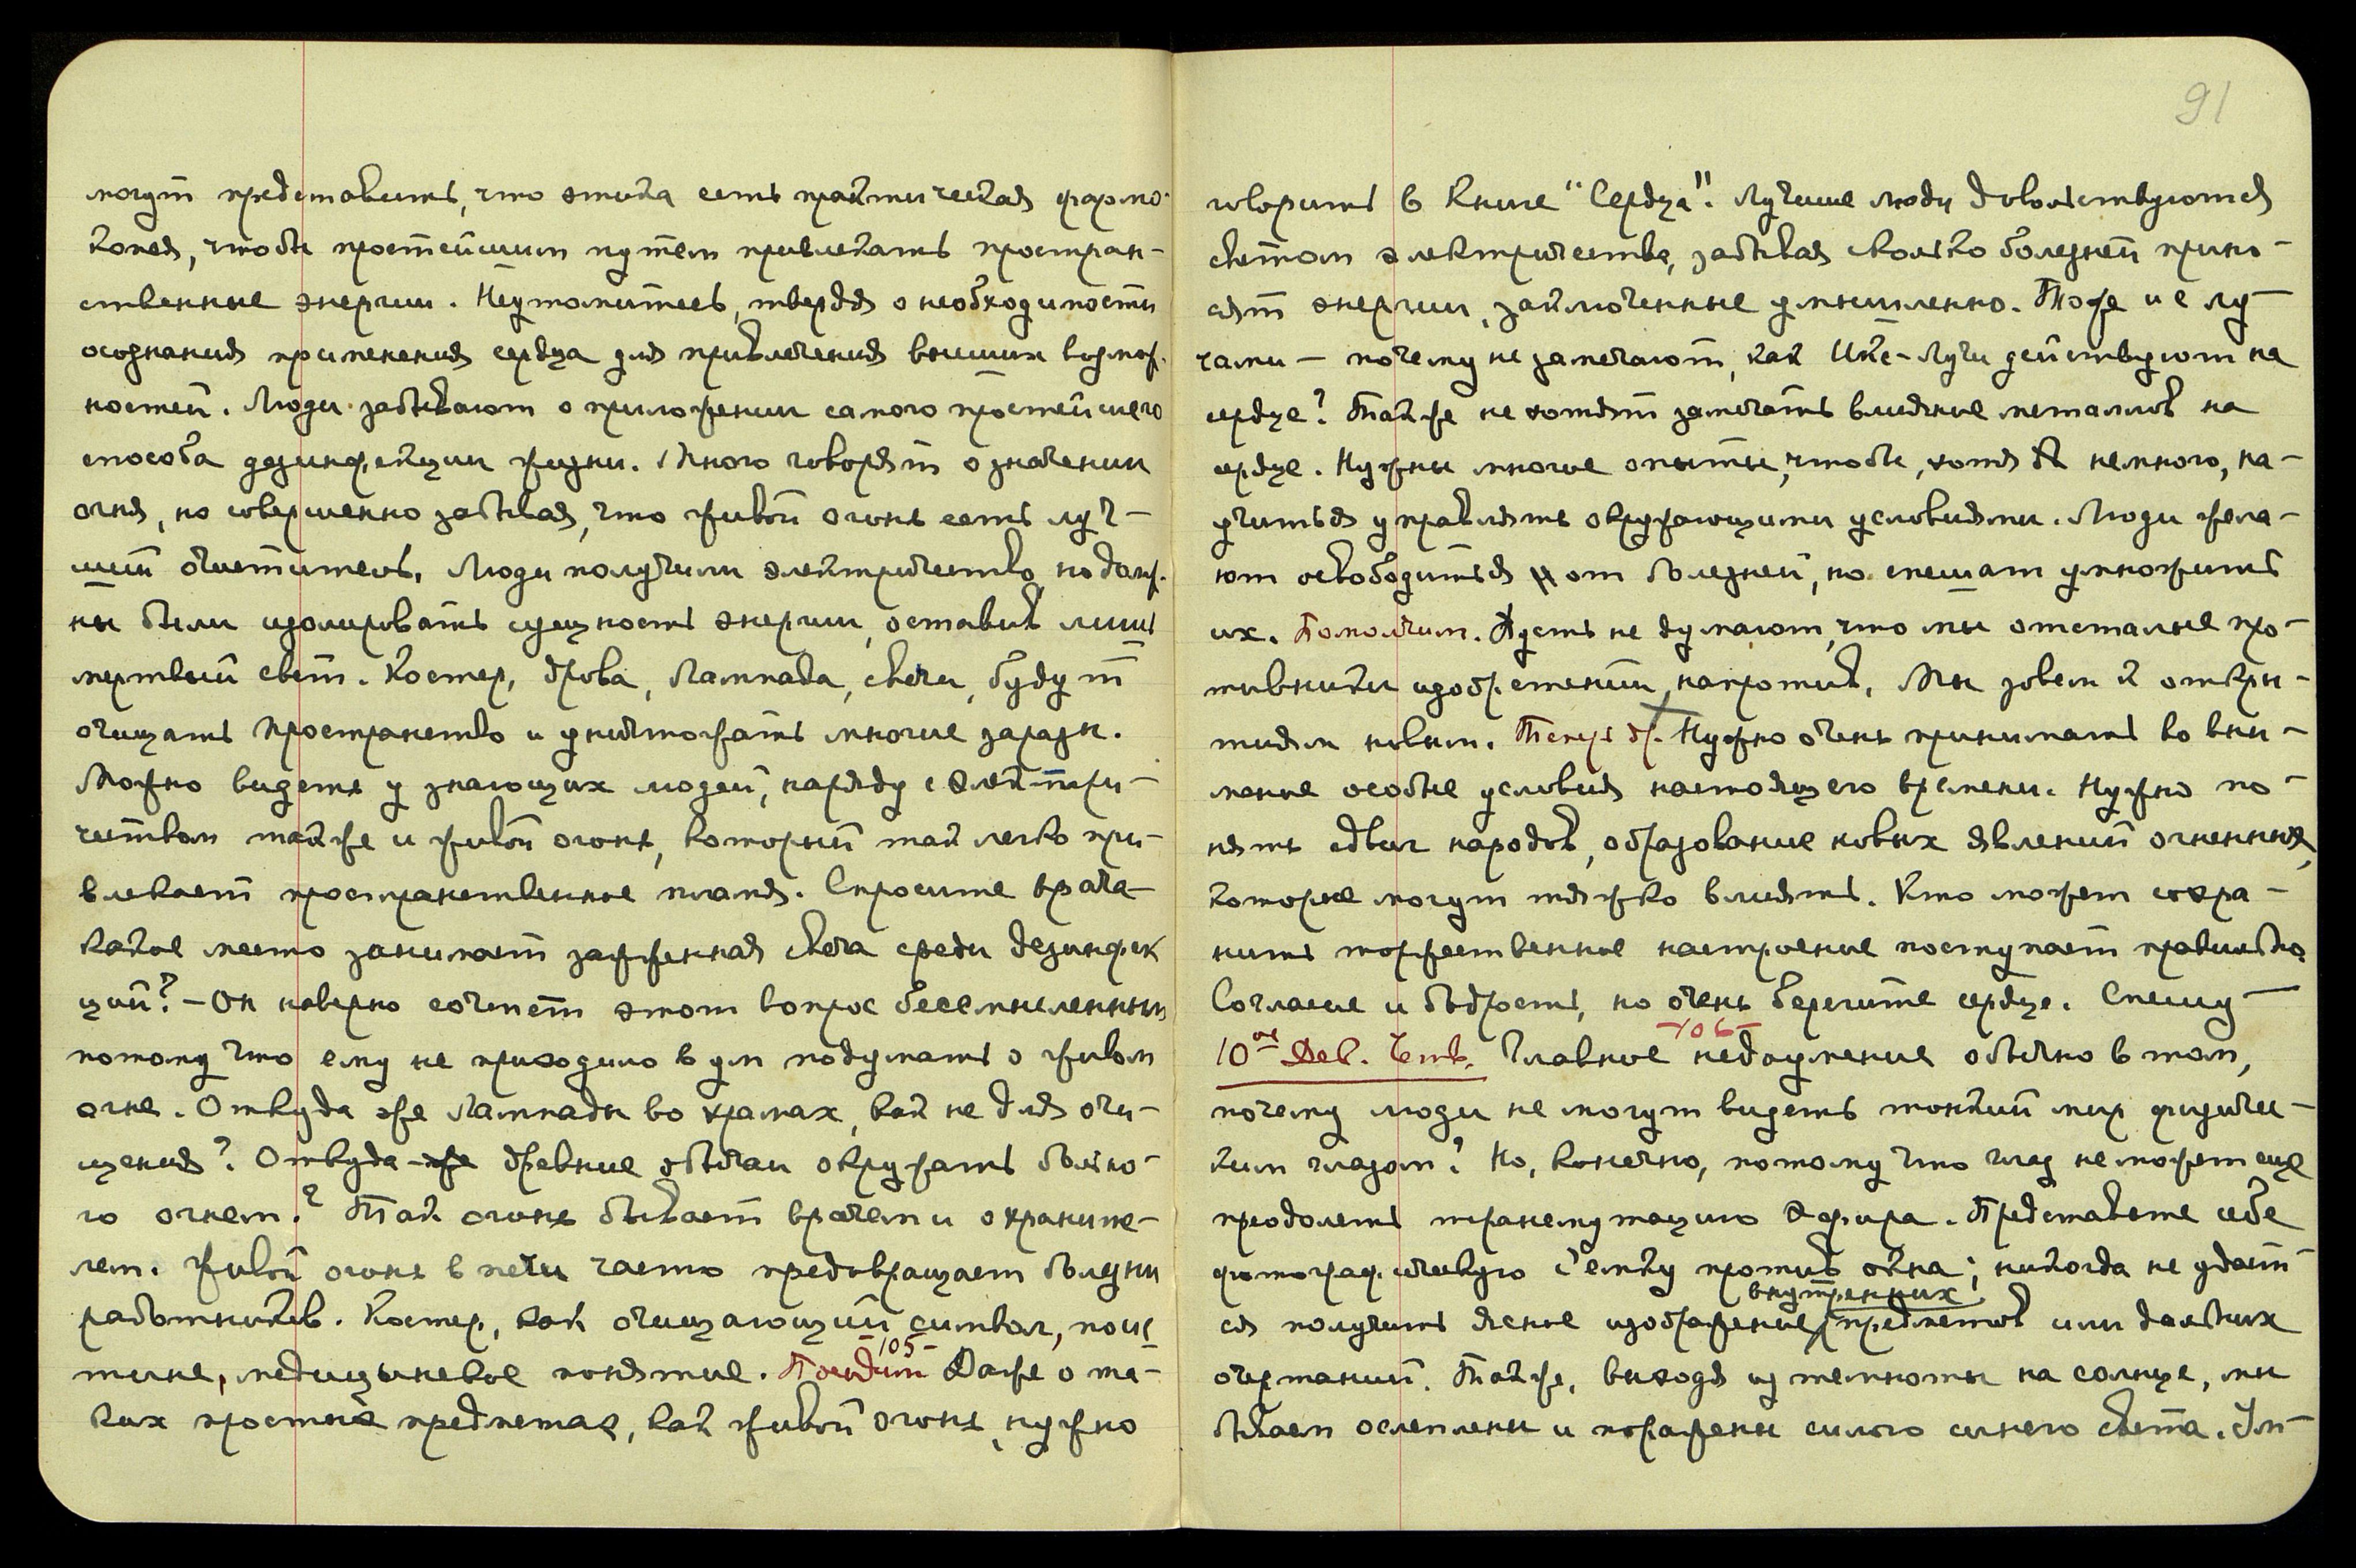 могут представить, что этика есть практическая фармо-
копея, чтобы простейшим путем привлекать простран-
ственные энергии. Неутомитесь, твердя о необходимости
осознания применения сердца для привлечения высших возмож-
ностей. Люди забывают о приложении самого простейшего
способа дезинфекции жизни. Много говорят о значении
огня, но совершенно забывая, что живой огонь есть луч-
ший очиститель. Люди получили электричество, но долж-
ны были изолировать сущность энергии, оставив лишь
мертвый свет. Костер, дрова, лампада, свечи, будут
очищать пространство и уничтожать многие заразы.
Можно видеть у знающих людей, наряду с электри-
чеством также и живой огонь, который так легко при-
влекает пространственное пламя. Спросите врача-
какое место занимает зажженная свеча среди дезинфек
ций? – Он наверно сочтет этот вопрос бессмысленным
потому что ему не приходило в ум подумать о живом
огне. Откуда же лампады во храмах, как не для очи-
щения? Откуда же древние обычаи окружать больно-
го огнем? Так огонь бывает врачем и охраните-
лем. Живой огонь в печи часто предовращает болезни
работников. Костер, как очищающий символ, поис
тине, медицынское понятие. Пойдим -105- Даже о та-
ких простых предметах, как живой огонь, нужно
91
говорить в Книге "Сердца". Лучшие люди довольствуются
светом электричества, забывая сколько болезней прино-
сят энергии, заключенные умышленно. Тоже и с лу-
чами – почему не замечают, как Икс-Лучи действуют на
сердце? Также не хотят замечать влияние металлов на
сердце. Нужны многие опыты, чтобы, хотя бы немного, на-
учиться управлять окружающими условиями. Люди жела-
ют освободиться от болезней, но спешат умножить
их. Помолчим. Пусть не думают, что мы отсталые про-
тивники изобретений, напротив, Мы зовем к откры-
тиям новым. Теперь др. Нужно очень принимать во вни-
мание особые условия настоящего времени. Нужно по-
нять сдвиг народов, образование новых явлений огненных,
которые могут тяжко влиять. Кто может сохра-
нить торжественное настроение поступает правильно.
Согласие и бодрость, но очень берегите сердце. Спешу –
10ое Дек. Четв. -106- Главное недоумение обычно в том,
почему люди не могут видеть тонкий мир физичес-
ким глазом? Но, конечно, потому что глаз не может еще
преодолеть трансмутацию эфира. Представьте себе
фотографическую с'емку против окна; никогда не удаст
ся получить ясное изображение внутренних предметов или дальних
очертаний. Также, выходя из темноты на солнце, мы
бываем ослеплены и поражены силою синего света. Ум-